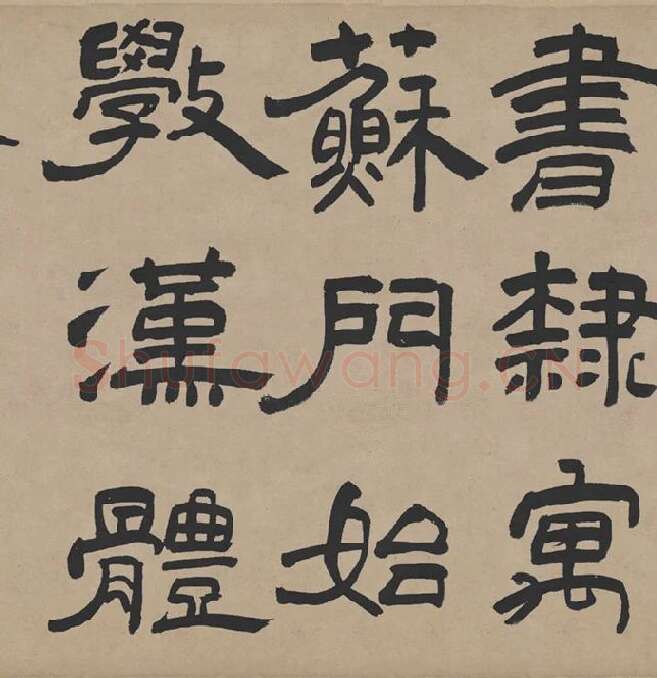 書隸寓
蘇門始
斅漢體
Shufawang.CN